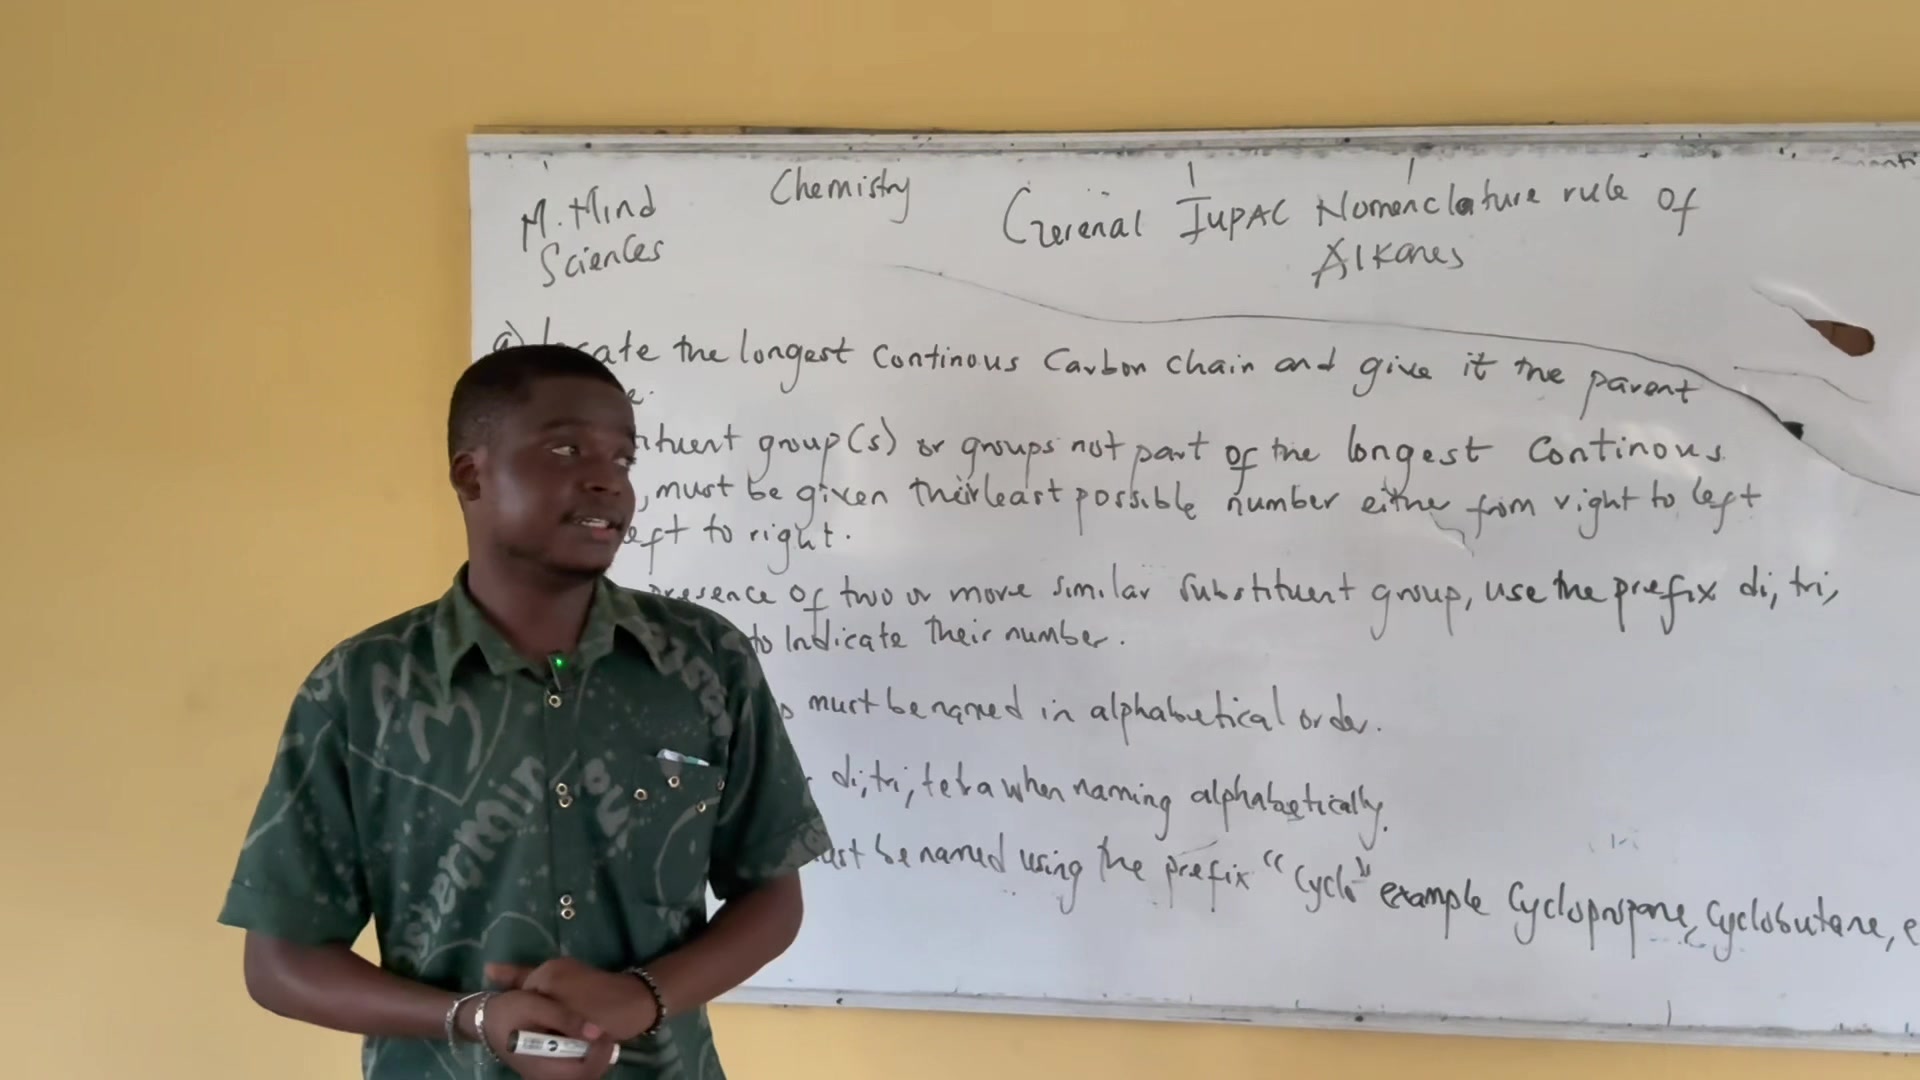 M. Mind
Sciences
Chemistry
Gerenal IUPAC Nomenclature rule of
Alkanes
a) Locate the longest Continous Carbon chain and give it the parent
group(s) or groups not part of the longest Continous
, must be given their least possible number either from right to left
left to right.
presence of two or more similar substituent group, use the prefix di, tri,
to Indicate their number.
must be named in alphabetical order.
di, tri, tetra when naming alphabetically.
must be named using the prefix "Cyclo" example Cyclopropane, Cyclobutane, e